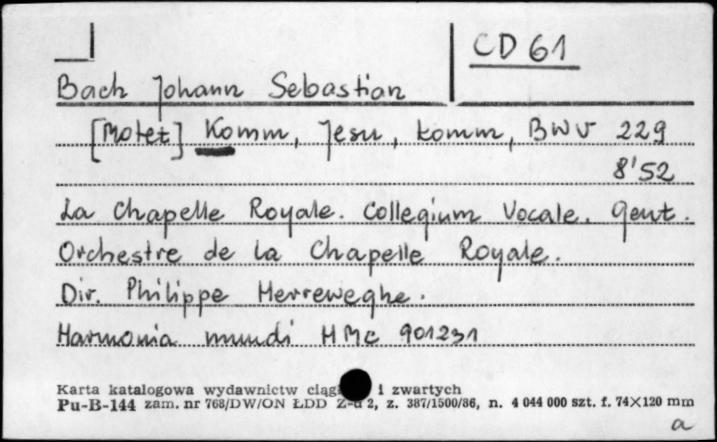 CD 61
Bach Johann Sebastian
[Motet] Komm, Jesu, komm, BWV 229
8'52
La Chapelle Royale. Collegium Vocale. Gent.
Orchestre de la Chapelle Royale.
Dir. Philippe Herreweghe.
Harmonia mundi HMC 901231
Karta katalogowa wydawnictw i zwartych
Pu-B-144 zam. nr 768/DW/ON ŁDD 2, z. 387/1500/86, n. 4 044 000 szt. f. 74×120 mm
a